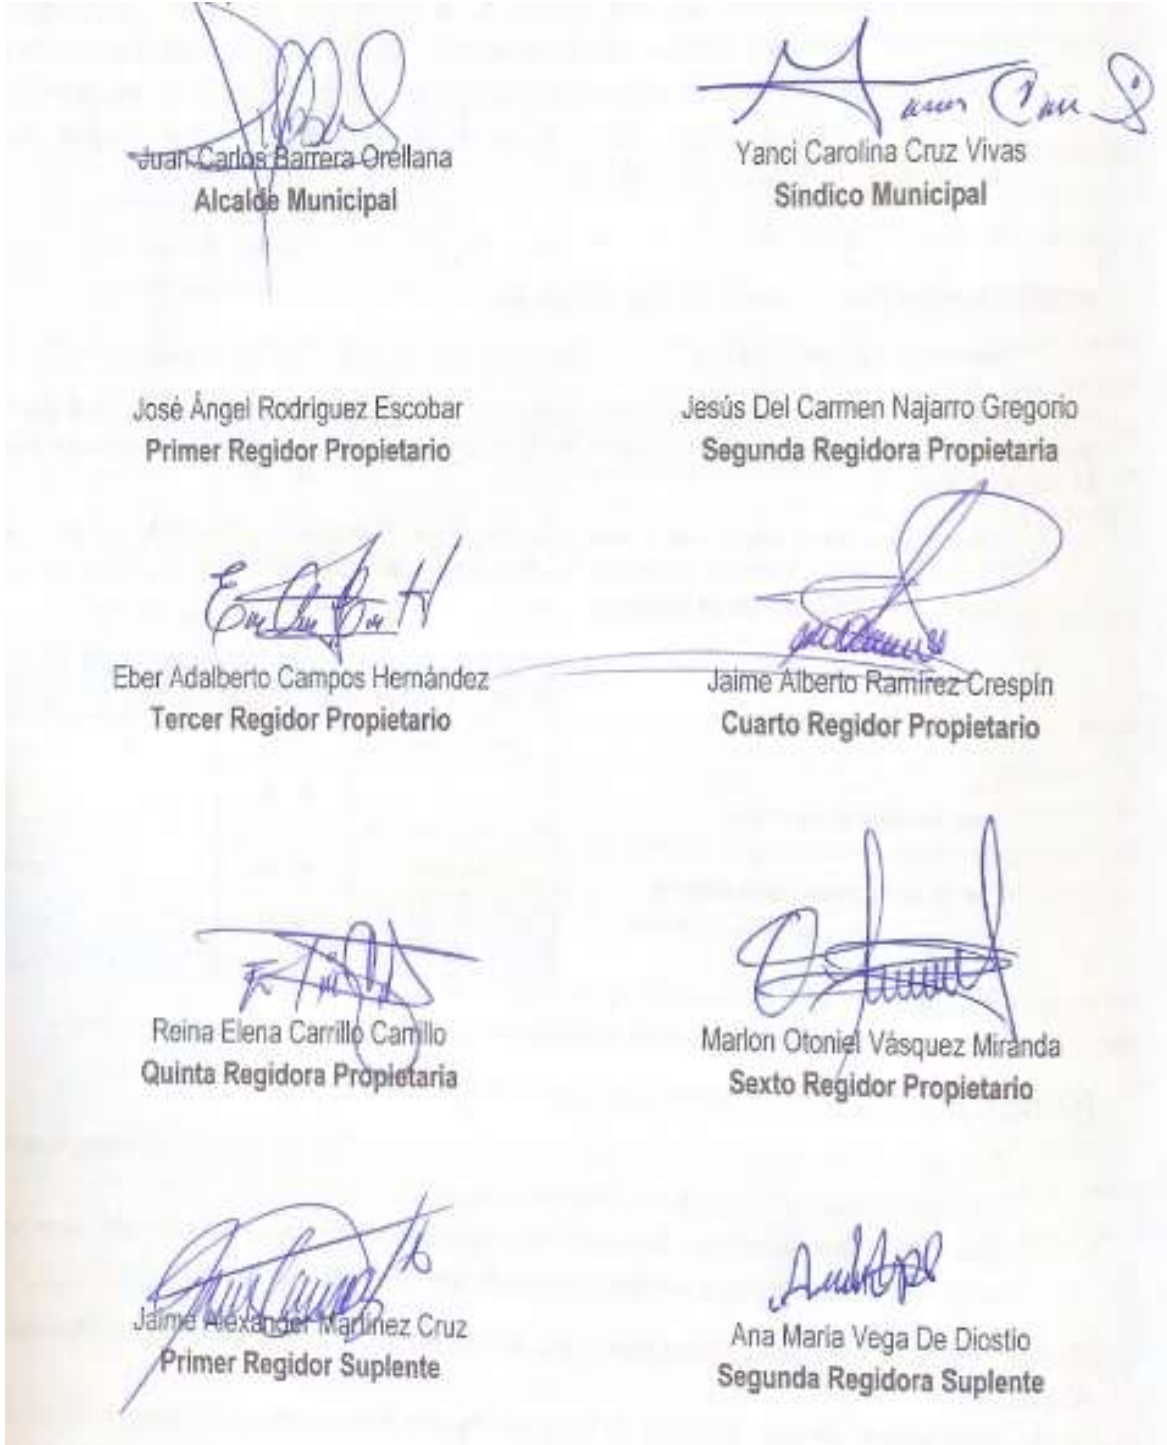 Juan Carlos Barrera Orellana
Alcalde Municipal
Yanci Carolina Cruz Vivas
Síndico Municipal
José Ángel Rodríguez Escobar
Primer Regidor Propietario
Jesús Del Carmen Najarro Gregorio
Segunda Regidora Propietaria
Eber Adalberto Campos Hernández
Tercer Regidor Propietario
Jaime Alberto Ramírez Crespín
Cuarto Regidor Propietario
Reina Elena Carrillo Carrillo
Quinta Regidora Propietaria
Marlon Otoniel Vásquez Miranda
Sexto Regidor Propietario
Jaime Alexander Martínez Cruz
Primer Regidor Suplente
Ana María Vega De Diostio
Segunda Regidora Suplente